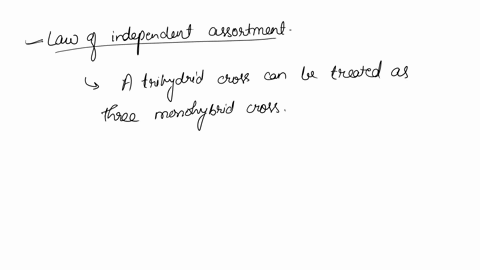 - Law of independent assortment.
↳ A trihydrid cross can be treated as
three monohybrid cross.